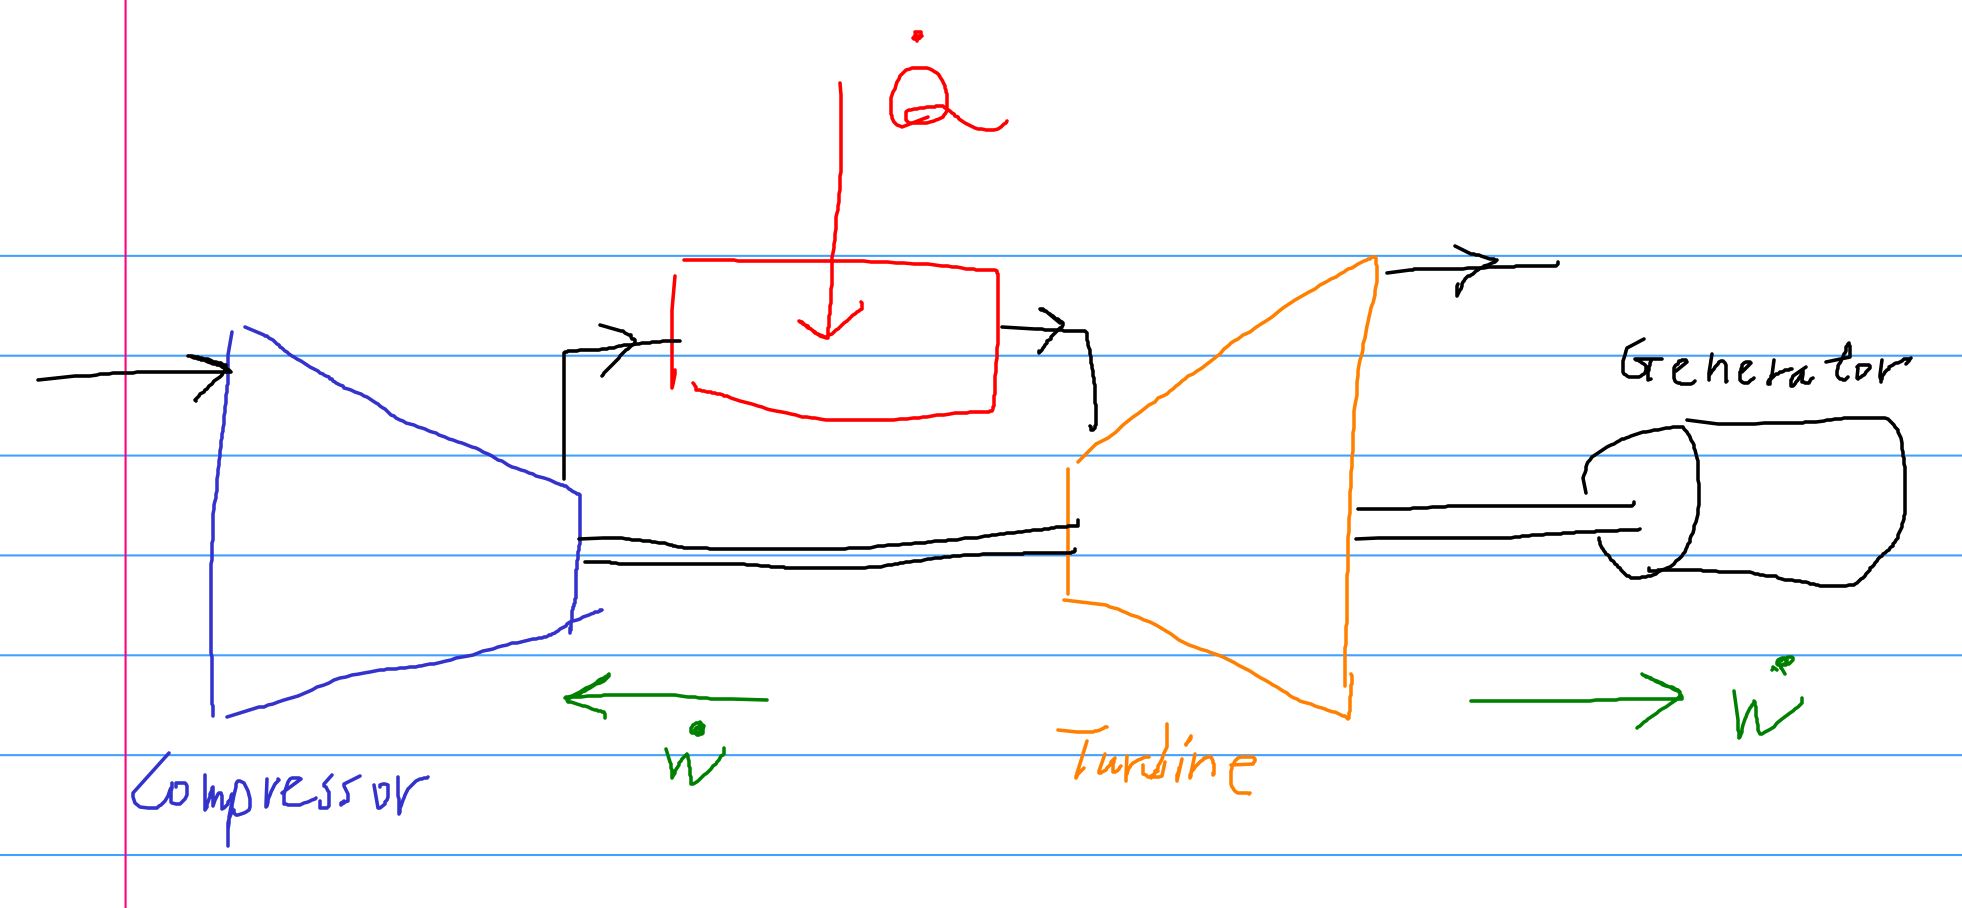 Q̇
Generator
Ẇ
Ẇ
Compressor
Turbine